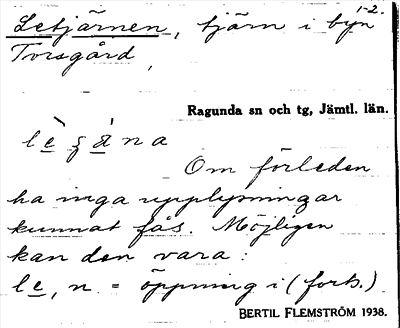 1-2.
Letjärnen, tjärn i byn
Torsgård,
Ragunda sn och tg, Jämtl. län.
Om förleden
ha inga upplysningar
kunnat fås. Möjligen
kan den vara:
le, n. = öppning i (forts.)
BERTIL FLEMSTRÖM 1938.